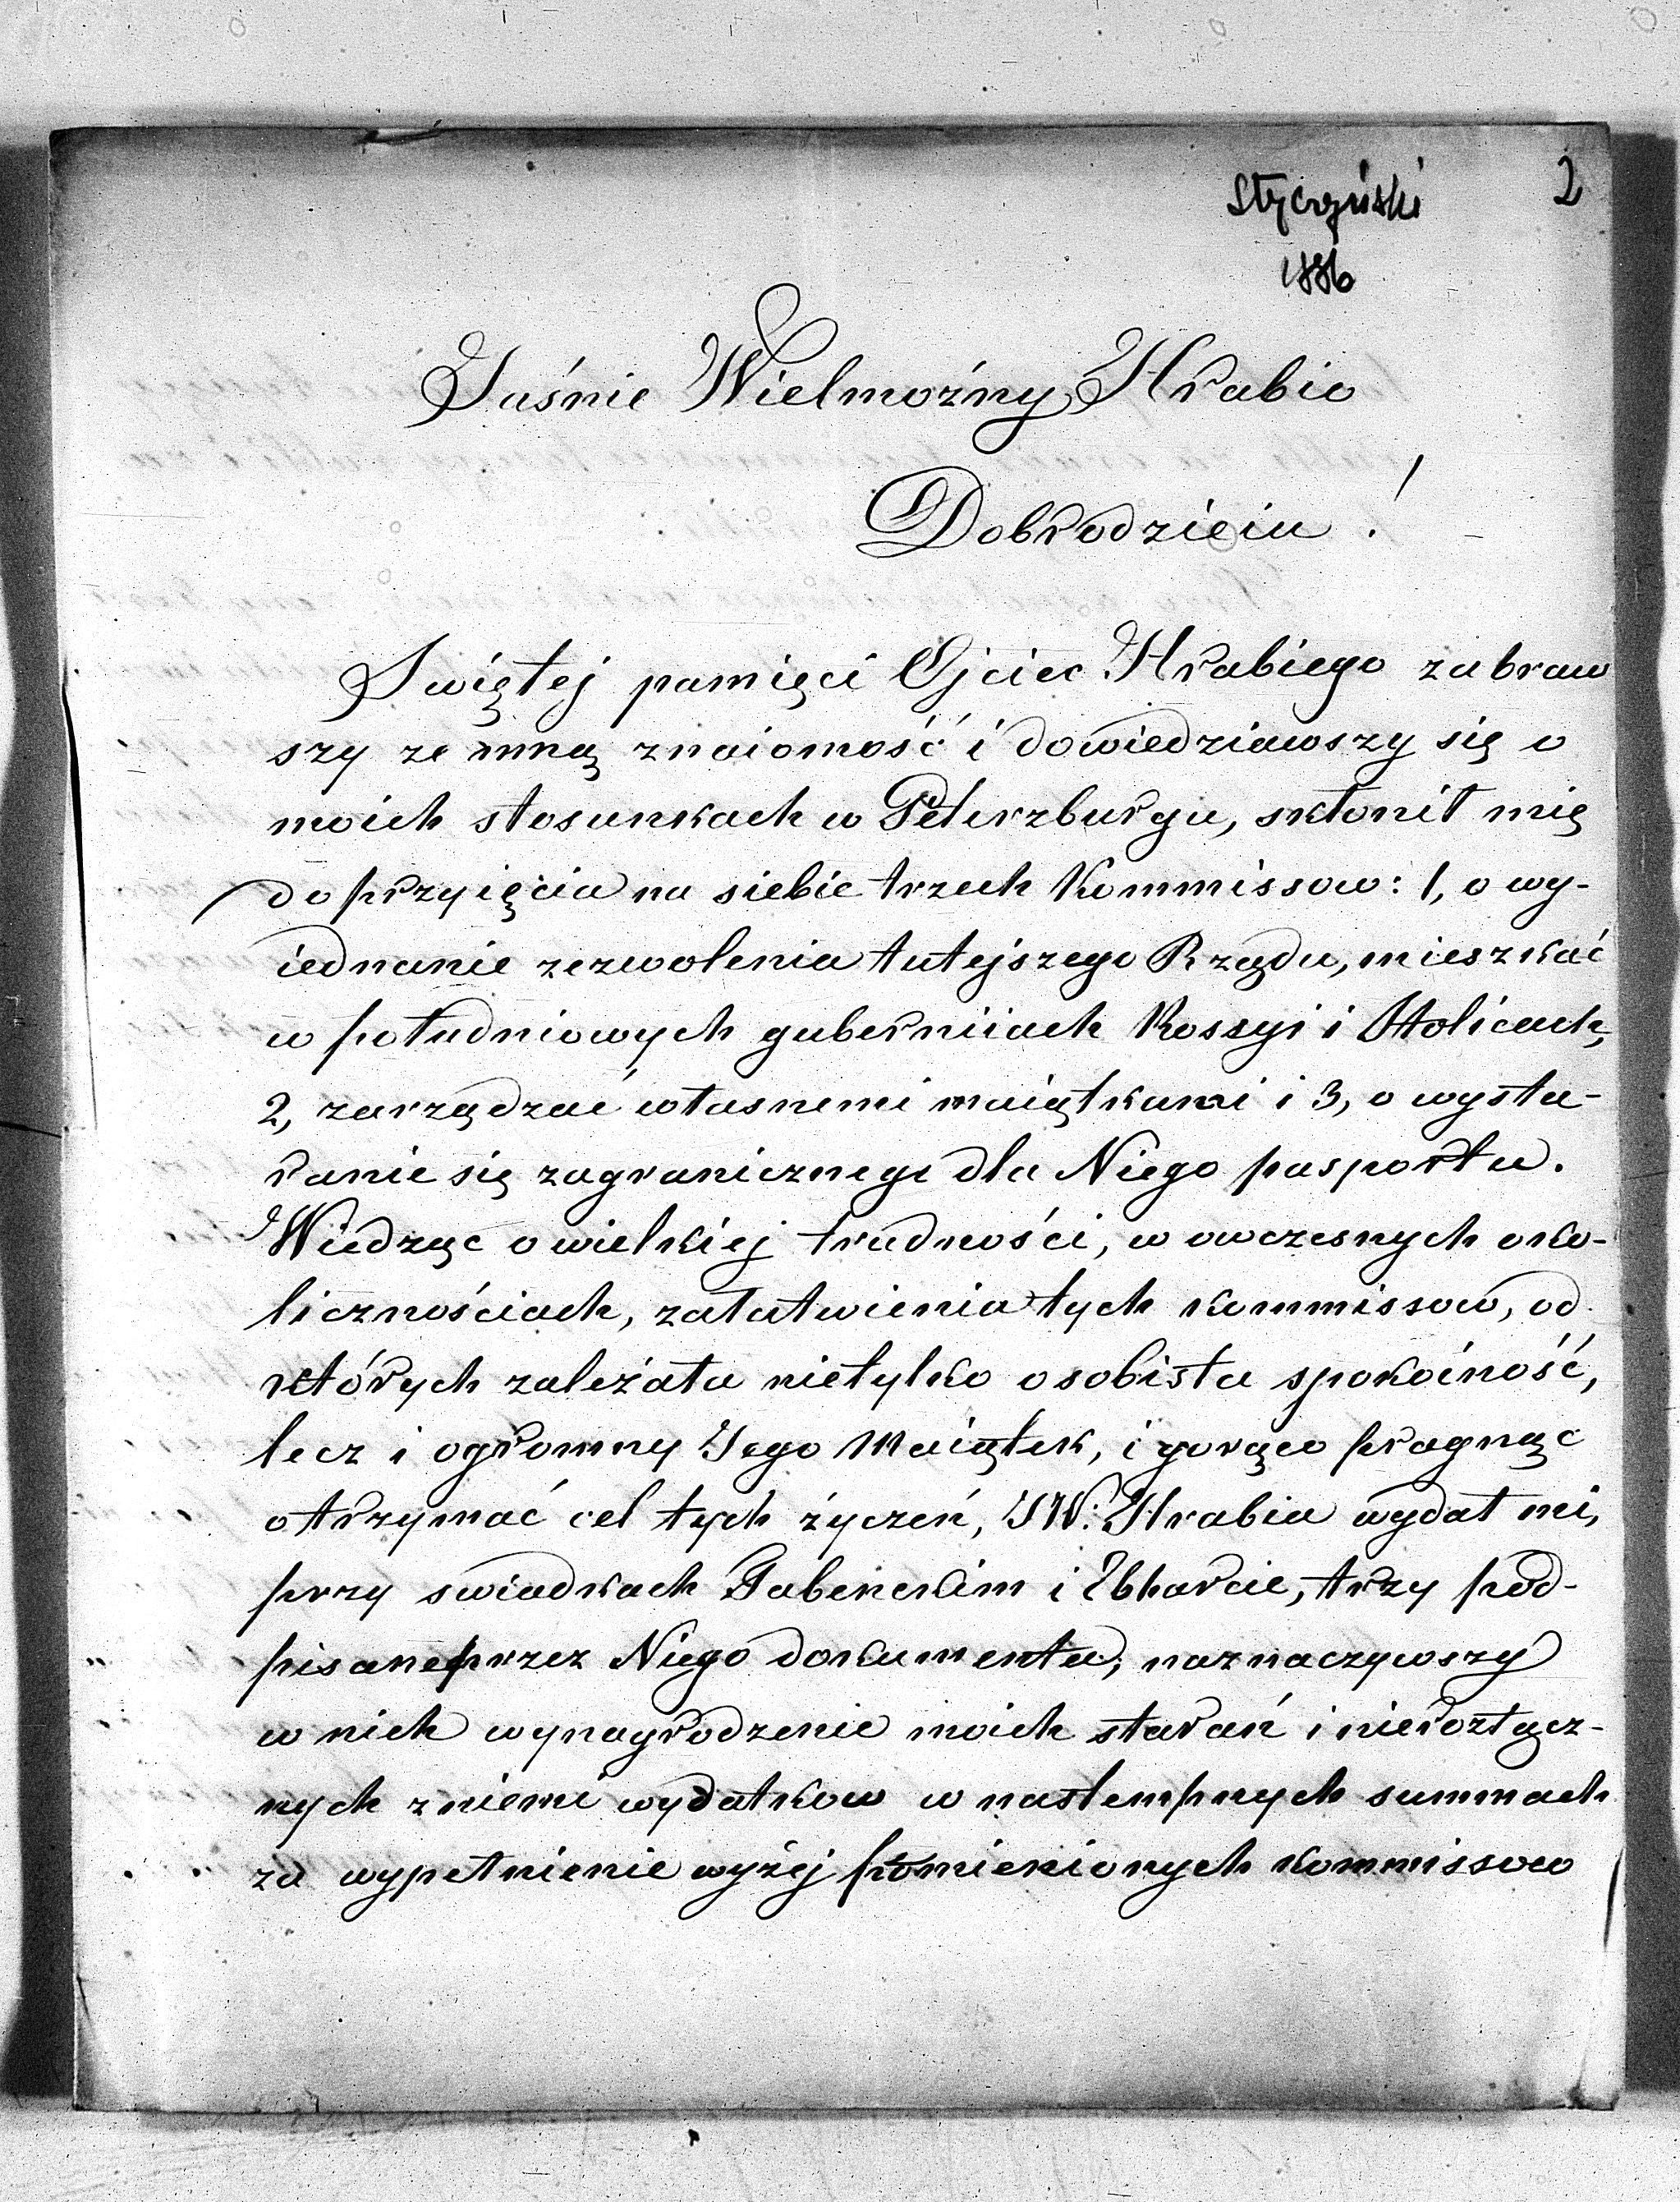 2
Styczyński
1886
Jaśnie Wielmożny Hrabio
Dobrodzieiu!
Swiętej pamięci Ojciec Hrabiego zabraw
szy ze mną znaiomość i dowiedziawszy się o
moich stosunkach w Peterzburgu, skłonił mię
do przyięcia na siebie trzech Kommissow: 1, o wy-
iednanie zezwolenia tutejszego Rządu, mieszkać
w południowych guberniiach Rossyi i Stolicach,
2, zarządzać własnemi maiątkami i 3, o wysta-
ranie się zagranicznego dla Niego pasportu.
Wiedząc o wielkiej trudności, w owczesnych oko-
licznościach, załatwienia tych kommissow, od
których zależała nietylko osobista spokoiność,
lecz i ogromny Jego Maiątek, i gorąco pragnąc
otrzymać cel tych życzeń, JW: Hrabia wydał mi,
przy swiadkach i trzy pod-
pisane przez Niego dokumenta, naznaczywszy
w nich wynagrodzenie moich starań i nierozłącz-
nych z niemi wydatkow w nastempnych summach
za wypełnienie wyżej pomienionych kommissow